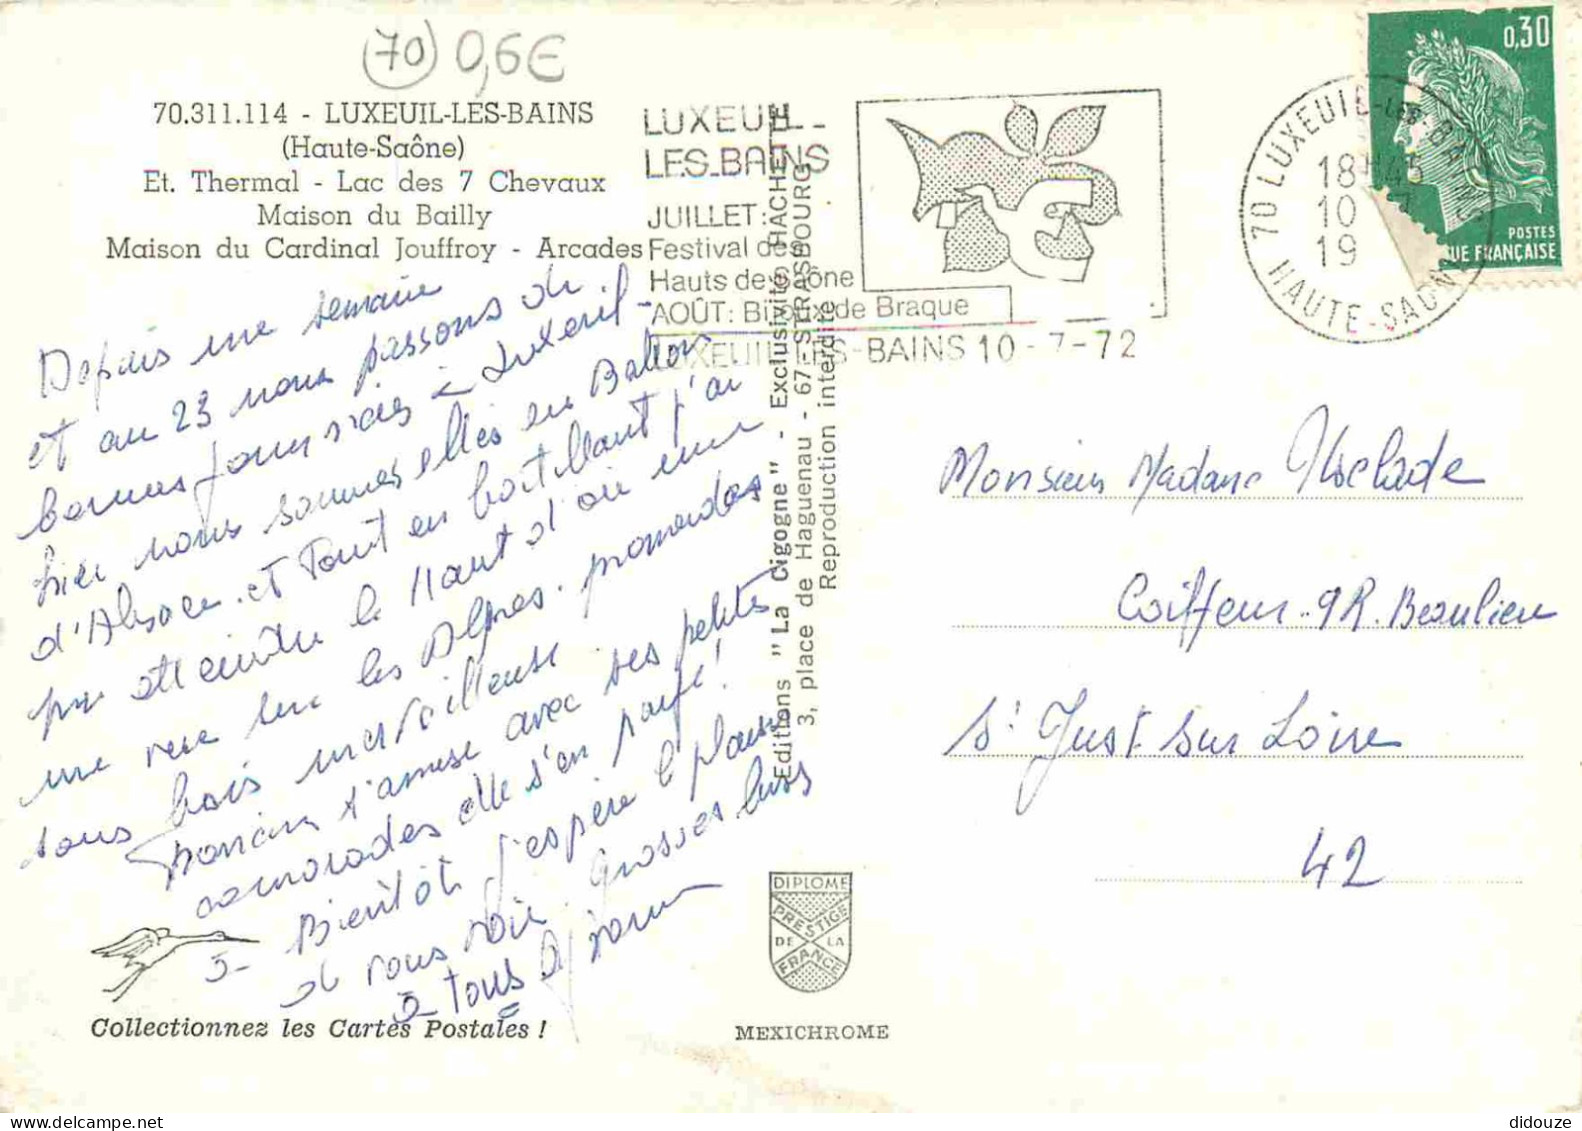 (70) 0,6€
70.311.114 - LUXEUIL-LES-BAINS
(Haute-Saône)
Et. Thermal - Lac des 7 Chevaux
Maison du Bailly
Maison du Cardinal Jouffroy - Arcades
LUXEUIL_
LES_BAINS
JUILLET:
Festival des
Hauts de Saône
AOÛT: Bijoux de Braque
LUXEUIL-LES-BAINS 10-7-72
70 LUXEUIL-LES-BAINS
18H45
10
19
HAUTE-SAONE
0,30
POSTES
QUE FRANÇAISE
Depuis une semaine
et au 23 nous passons de
bonnes journées à Luxeuil -
hier nous sommes allés au Ballon
d'Alsace. et tout en boitillant j'ai
pu atteindre le Haut d'où une
une vue sur les Alpes. promenades
sous bois merveilleuse
s'amuse avec ses petites
camarades elle s'en paye!
à Bientôt j'espère le plaisir
de vous voir. Grosses bises
à tous
Editions "La Cigogne" - Exclusivité HACHETTE
3, place de Haguenau - 67-STRASBOURG
Reproduction interdite
Monsieur Madame
Coiffeur. 9 R. Beaulieu
St Just sur Loire
42
DIPLOME
PRESTIGE
DE LA
FRANCE
Collectionnez les Cartes Postales !
MEXICHROME
didouze